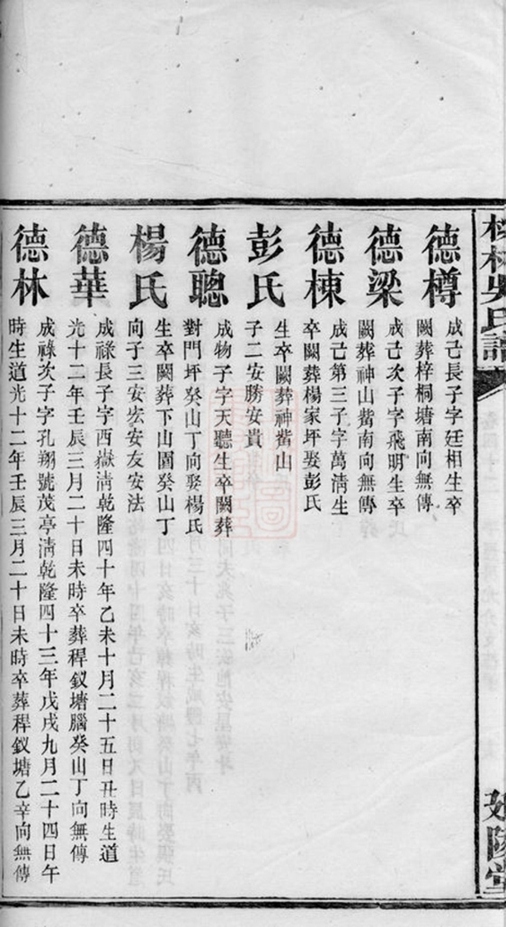 林吳氏譜
德樽
成己長子字廷相生卒
闕葬梓桐塘南向無傳
德梁
成己次子字飛明生卒
闕葬神山觜南向無傳
德棟
成己第三子字萬淸生
卒闕葬楊家坪娶彭氏
彭氏
生卒闕葬神觜山
子二安勝安貴
德聰
成物子字天聽生卒闕葬
對門坪癸山丁向娶楊氏
楊氏
生卒闕葬下山圍癸山丁
向子三安宏安友安法
德華
成祿長子字西嶽淸乾隆四十年乙未十月二十五日丑時生道
光十二年壬辰三月二十日未時卒葬稈釵塘腦癸山丁向無傳
德林
成祿次子字孔翔號茂亭淸乾隆四十三年戊戌九月二十四日午
時生道光十二年壬辰三月二十日未時卒葬稈釵塘乙辛向無傳
陵堂